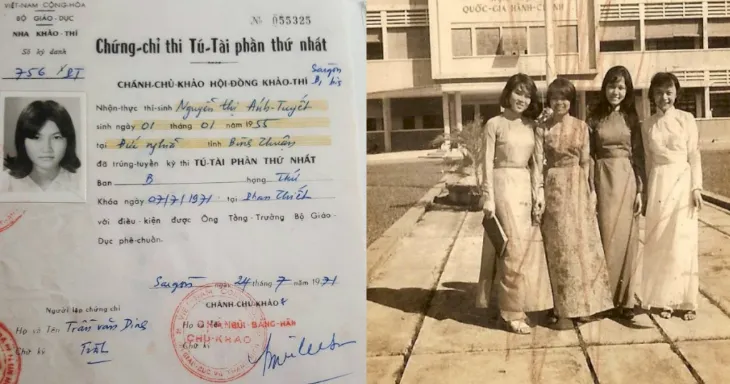 VIỆT-NAM CỘNG-HÒA
BỘ GIÁO-DỤC
NHA KHẢO-THÍ
Số ký danh
756 XBT
№ 055325
Chứng-chỉ thi Tú-Tài phần thứ nhất
CHÁNH-CHỦ-KHẢO HỘI-ĐỒNG KHẢO-THÍ Saigon
Nhận-thực thí-sinh Nguyễn thị Ánh-Tuyết
sinh ngày 01 tháng 01 năm 1955
tại Đức nghĩa tỉnh Bình Thuận
đã trúng-tuyển kỳ thi TÚ-TÀI PHẦN THỨ NHẤT
Ban B hạng Thứ
Khóa ngày 07/7/1971 tại Phan Thiết
với điều-kiện được Ông Tổng-Trưởng Bộ Giáo-
Dục phê-chuẩn.
Saigon ngày 24 tháng 7 năm 1971
Người lập chứng chỉ
CHÁNH-CHỦ-KHẢO
Họ và Tên Trần văn Ding
Họ
Chữ ký
CHỦ-KHẢO
QUỐC-GIA HÀNH-CHÍNH